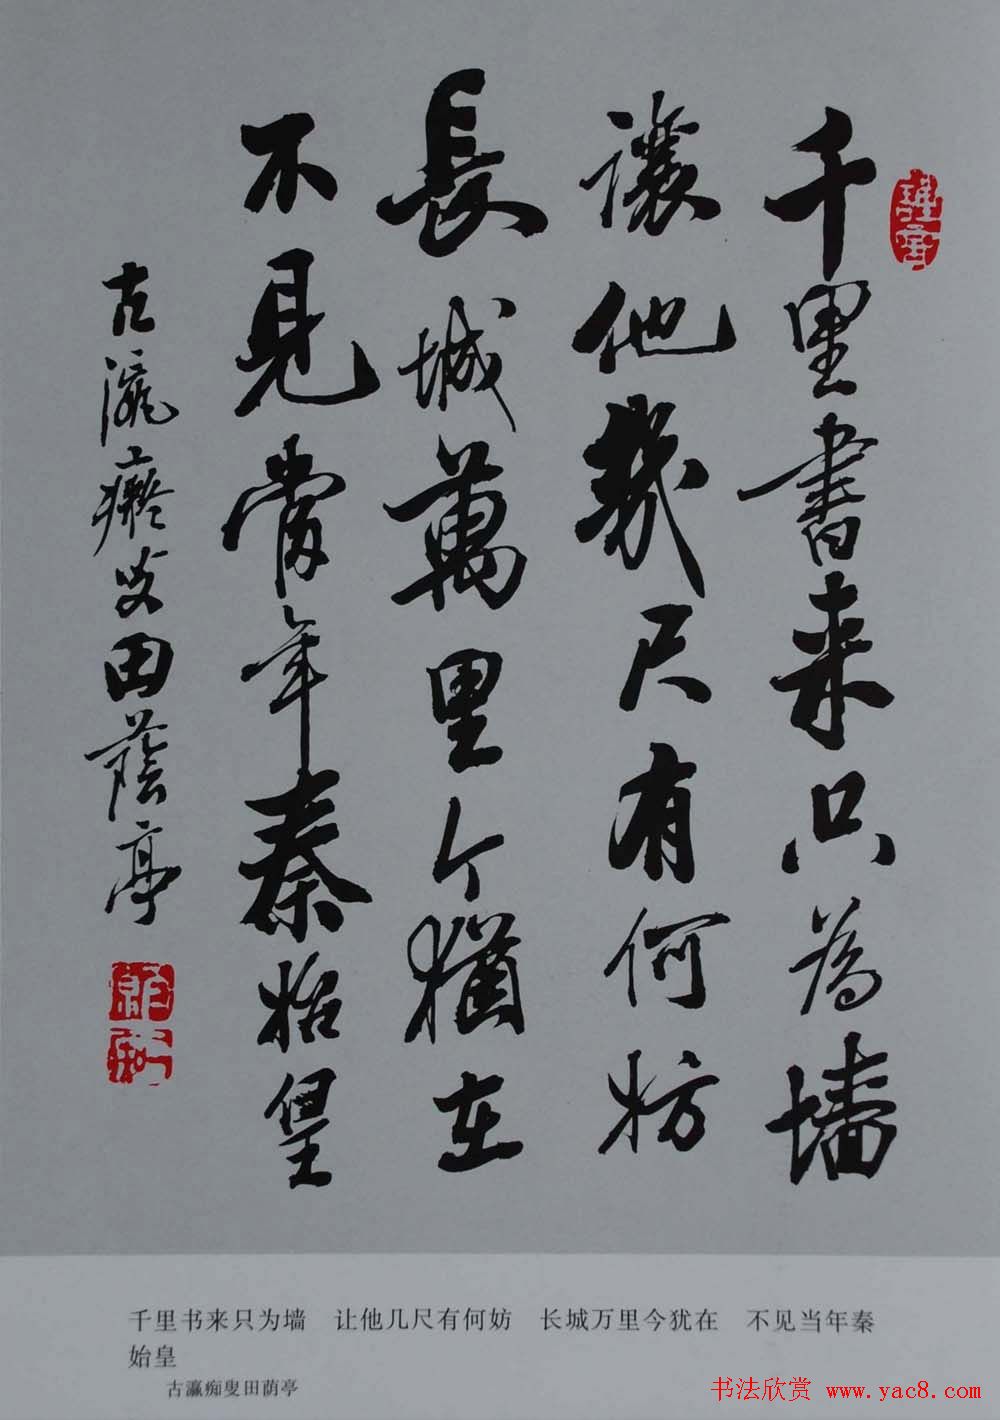 千里書来只為墙
讓他幾尺有何妨
長城萬里今猶在
不見當年秦始皇
古瀛癡叟田蔭亭
千里书来只为墙　让他几尺有何妨　长城万里今犹在　不见当年秦
始皇
古瀛痴叟田荫亭
书法欣赏 www.yac8.com